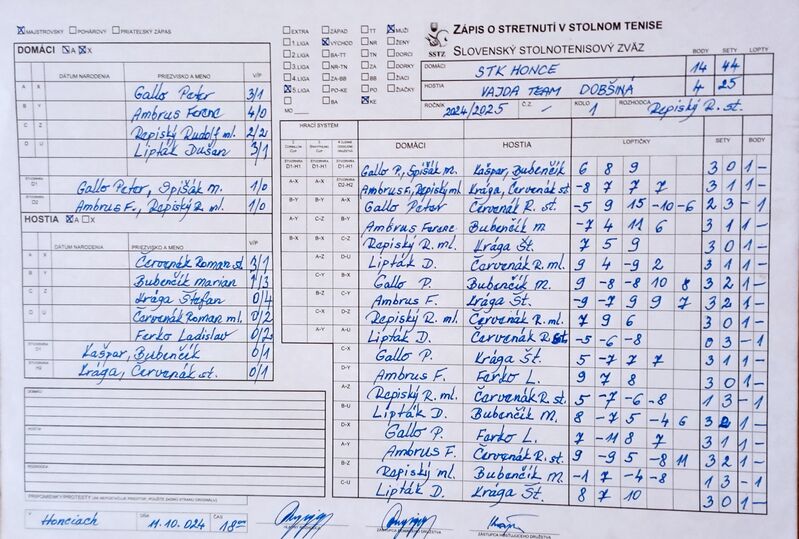 MAJSTROVSKÝ POHÁROVÝ PRIATEĽSKÝ ZÁPAS
DOMÁCI A X
DÁTUM NARODENIA PRIEZVISKO A MENO V/P
A X Gallo Peter 3/1
B Y Ambrus Ferenc 4/0
C Z Repiský Rudolf ml. 2/2
D U Lipták Dušan 3/1
ŠTVORHRA D1 Gallo Peter, Spišák M. 1/0
ŠTVORHRA D2 Ambrus F., Repiský R. ml. 1/0
HOSTIA A X
DÁTUM NARODENIA PRIEZVISKO A MENO V/P
Červenák Roman st. 3/1
Bubenčík Marian 1/3
Krága Štefan 0/4
Červenák Roman ml. 0/2
Ferko Ladislav 0/2
Kašpar, Bubenčík 0/1
Krága, Červenák st. 0/1
DOMÁCI
HOSTIA
ROZHODCA
PRIPOMIENKY/PROTESTY
Honciach DŇA 11.10.024 ČAS 18:00
EXTRA ZÁPAD TT MUŽI
1.LIGA VÝCHOD NR ŽENY
2.LIGA BA-TT TN DORKY
3.LIGA NR-TN ZA DORCI
4.LIGA ZA-BB BB ŽIAČKY
5.LIGA PO-KE PO ŽIACI
MO BA KE
ZÁPIS O STRETNUTÍ V STOLNOM TENISE
SSTZ SLOVENSKÝ STOLNOTENISOVÝ ZVÄZ
BODY SETY LOPTY
DOMÁCI STK HONCE 14 44
HOSTIA VAJDA TEAM DOBŠINÁ 4 25
ROČNÍK 2024/2025 Č.Z. KOLO 1 ROZHODCA Repiský R. st.
HRACÍ SYSTÉM DOMÁCI HOSTIA LOPTIČKY SETY BODY
Gallo P, Spišák M. Kašpar, Bubenčík 6 8 9 3 0 1 -
Ambrus F, Repiský ml. Krága, Červenák st. -8 7 7 7 3 1 1 -
Gallo Peter Červenák R. st. -5 9 15 -10 -6 2 3 - 1
Ambrus Ferenc Bubenčík M -7 4 11 6 3 1 1 -
Repiský R. ml. Krága Št. 7 5 9 3 0 1 -
Lipták D. Červenák R. ml. 9 4 -9 2 3 1 1 -
Gallo P. Bubenčík M. 9 -8 -8 10 8 3 2 1 -
Ambrus F. Krága Št. -9 -7 9 9 7 3 2 1 -
Repiský R. ml. Červenák R. ml. 7 9 6 3 0 1 -
Lipták D. Červenák R. st -5 -6 -8 0 3 - 1
Gallo P. Krága Št. 5 -7 7 7 3 1 1 -
Ambrus F. Ferko L. 9 7 8 3 0 1 -
Repiský R. ml. Červenák R. st. 5 -7 -6 -8 1 3 - 1
Lipták D. Bubenčík M. 8 -7 5 -4 6 3 2 1 -
Gallo P. Ferko L. 7 -11 8 7 3 1 1 -
Ambrus F. Červenák R. st. 9 -9 5 -8 11 3 2 1 -
Repiský ml. Bubenčík M. -1 7 -4 -8 1 3 - 1
Lipták D. Krága Št. 8 7 10 3 0 1 -